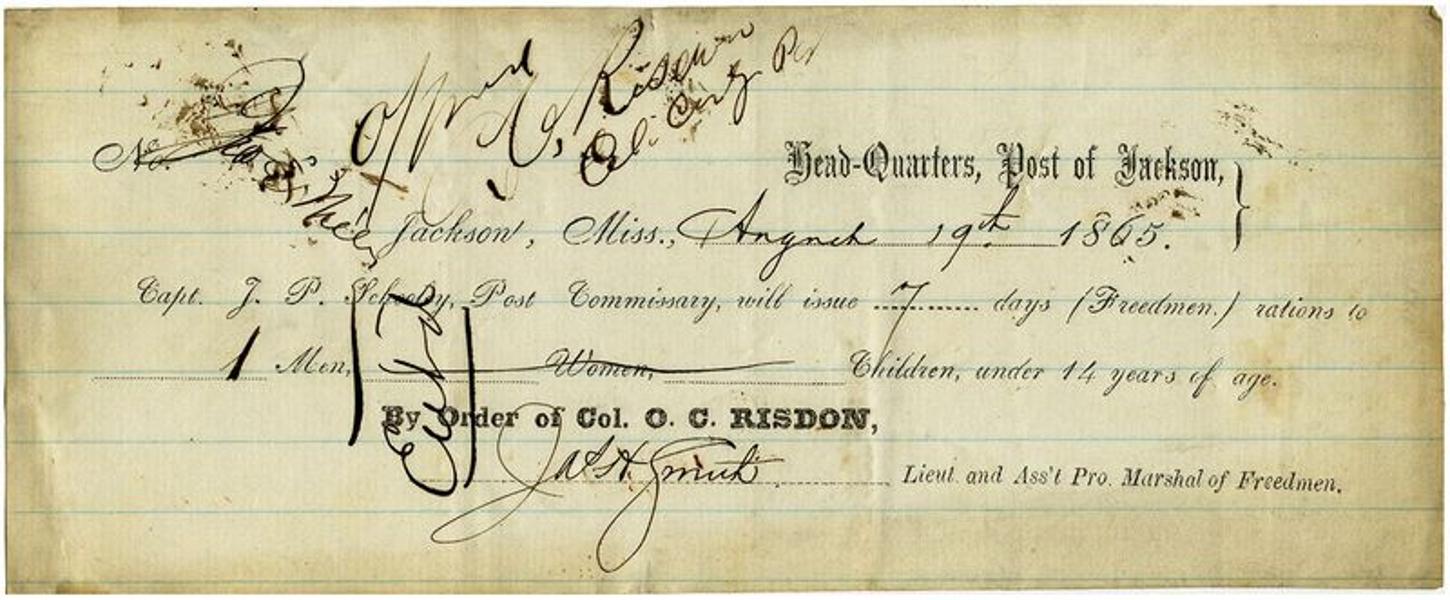 No.
O. Risdon
Col. Comg Post
Head-Quarters, Post of Jackson,
Jackson, Miss., August 19th 1865.
Capt. J. P. Schooly, Post Commissary, will issue 7 days (Freedmen.) rations to
1 Men, Women, Children, under 14 years of age.
By Order of Col. O. C. RISDON,
Jas H. Smith
Lieut. and Ass't Pro. Marshal of Freedmen.